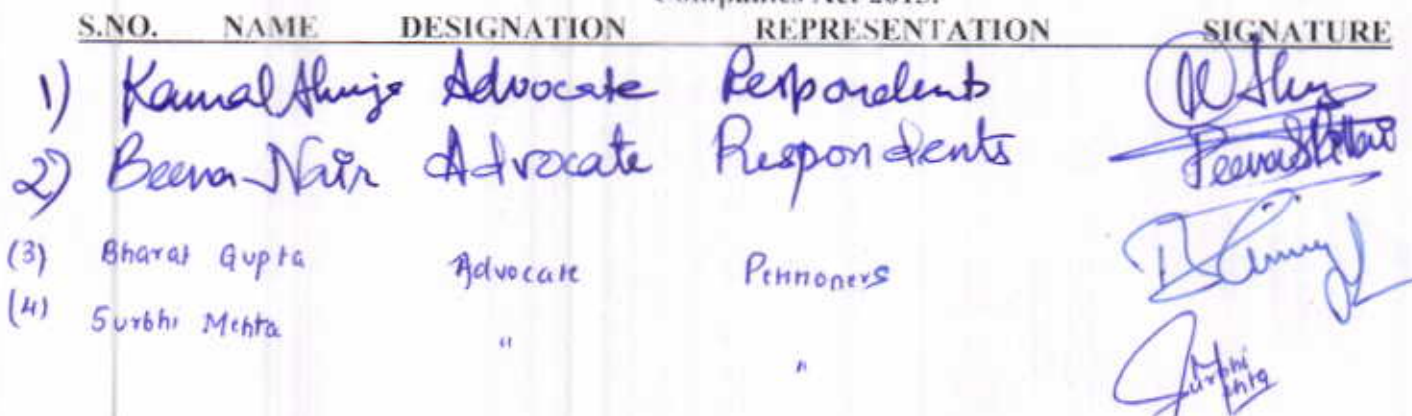 Companies Act 2013.
S.NO. NAME DESIGNATION REPRESENTATION SIGNATURE
1) Kamal Ahuja Advocate Respondents
2) Beena Nair Advocate Respondents
(3) Bharat Gupta Advocate Petitioners
(4) Surbhi Mehta " "
Surbhi
Mehta